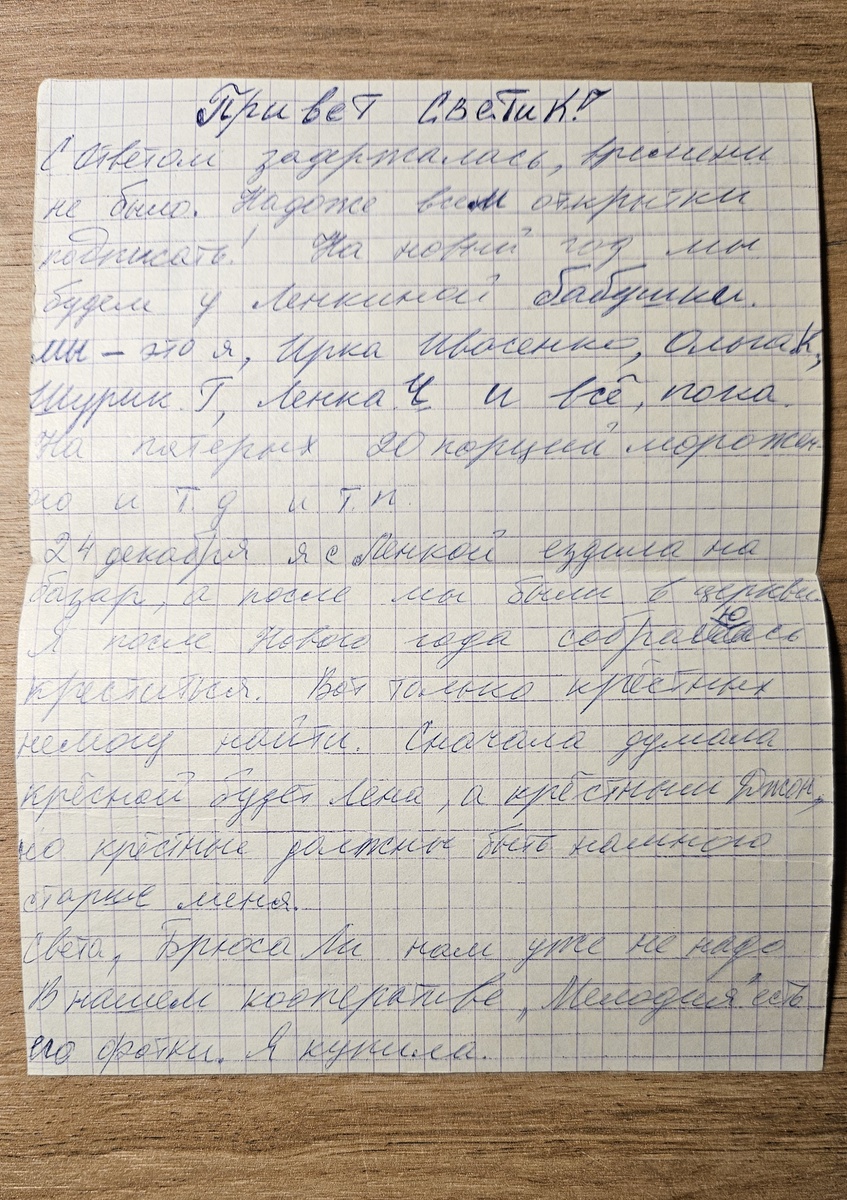 Привет Светик!
С ответом задержалась, времени
не было. Надоже всем открытки
подписать! На новый год мы
будем у Ленкиной бабушки.
мы – это я, Ирка Ивасенко, Ольга К,
Шурик Г, Ленка Ч и всё, пока.
На пятерых 20 порций морожен-
ого и т.д и т.п.
24 декабря я с Ленкой ездила на
базар, а после мы были в церкви.
Я после Нового года собраюсь
креститься. Вот только крёстных
немогу найти. Сначала думала
крёсной будет Лена, а крёстным Джон,
но крёстные должны быть намного
старше меня.
Света, Брюса Ли нам уже не надо
В нашем кооперативе „Мелодия" есть
его фотки. Я купила.